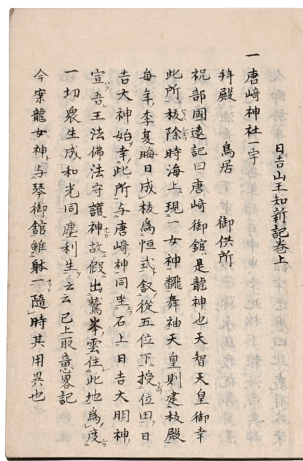 日吉山王知新記巻上
一 唐﨑神社一宇
拝殿 鳥居 御供所
祝部國遠記曰唐﨑御館是龍神也天智天皇御幸
此所祓除時海上現一女神飜舞袖天皇則建祓殿
毎年季夏晦日成祓為恒式叙從五位下授位田日
吉大神始幸此所与唐﨑神同坐石上日吉大明神
宣吾王法佛法守護神故假出鷲峯雲住此地為度
一切衆生成和光同塵利生云云已上取意畧記
今案龍女神与琴御館雖躰一随時其用異也